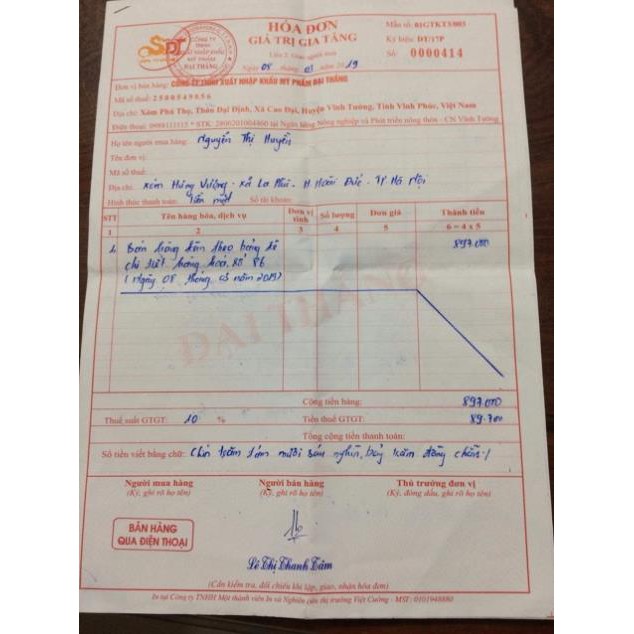 HÓA ĐƠN
GIÁ TRỊ GIA TĂNG
Liên 2: Giao người mua
Ngày 08 tháng 03 năm 2019
Mẫu số: 01GTKT3/003
Ký hiệu: DT/17P
Số: 0000414
SPT
CÔNG TY
TNHH
XUẤT NHẬP KHẨU
MỸ PHẨM
ĐẠI THẮNG
Đơn vị bán hàng: CÔNG TY TNHH XUẤT NHẬP KHẨU MỸ PHẨM ĐẠI THẮNG
Mã số thuế: 2500549056
Địa chỉ: Xóm Phú Thọ, Thôn Đại Định, Xã Cao Đại, Huyện Vĩnh Tường, Tỉnh Vĩnh Phúc, Việt Nam
Điện thoại: 0984111115 * STK: 2806201004860 tại Ngân hàng Nông nghiệp và Phát triển nông thôn - CN Vĩnh Tường
Họ tên người mua hàng: Nguyễn Thị Huyền
Tên đơn vị:
Mã số thuế:
Địa chỉ: xóm Hùng Vương - Xã La Phù - H Hoài Đức - TP Hà Nội
Hình thức thanh toán: Tiền mặt Số tài khoản:
STT Tên hàng hóa, dịch vụ Đơn vị tính Số lượng Đơn giá Thành tiền
1 2 3 4 5 6 = 4 x 5
1. Bán hàng kèm theo bảng kê 897.000
chi tiết hàng hóa số 86
(ngày 08 tháng 03 năm 2019)
ĐẠI THẮNG
Cộng tiền hàng: 897.000
Thuế suất GTGT: 10 % Tiền thuế GTGT: 89.700
Tổng cộng tiền thanh toán:
Số tiền viết bằng chữ: Chín trăm tám mươi sáu nghìn, bảy trăm đồng chẵn./
Người mua hàng Người bán hàng Thủ trưởng đơn vị
(Ký, ghi rõ họ tên) (Ký, ghi rõ họ tên) (Ký, đóng dấu, ghi rõ họ tên)
BÁN HÀNG
QUA ĐIỆN THOẠI
Lê Thị Thanh Tâm
(Cần kiểm tra, đối chiếu khi lập, giao, nhận hóa đơn)
In tại Công ty TNHH Một thành viên In và Nghiên cứu thị trường Việt Cường - MST: 0101948880